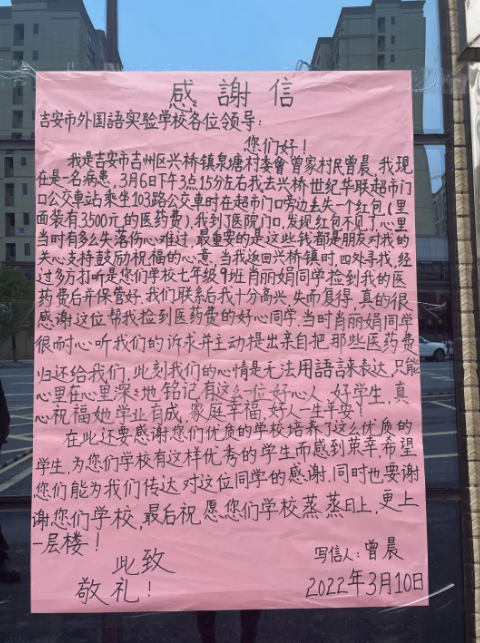 感謝信
吉安市外国語实验学校各位领导：
您们好！
我是吉安市吉州区兴桥镇泉塘村委會曾家村民曾晨，我现
在是一名病患，3月6日下午3点15分左右我去兴桥世纪华联超市门
口公交車站乘坐103路公交車时在超市门口旁边丢一个红包（里
面装有3500元的医药费），我到了医院门口，发现红包不见了，心里
当时有多么失落伤心难过，最重要的是这些钱都是朋友对我的
关心支持鼓励祝福的心意，当我返回兴桥镇时，四外寻找，经
过多方打听是您们学校七年级9班肖丽娟同学捡到我的医
药费后并保管好，我们联系后我十分高兴，失而复得，真的很
感谢这位帮我捡到医药费的好心同学，当时肖丽娟同学
很耐心听我们的诉求并主动提出亲自把，那些医药费
归还给我们，此刻我们的心情是无法用語言来表达，只能
心里在心里深深地铭记，有这么一位好心人，好学生，真
心祝福她学业有成，家庭幸福，好人一生平安！
在此还要感谢您们优质的学校培养了这么优质的
学生，为您们学校有这样优秀的学生而感到荣幸，希望
您们能为我们传达对这位同学的感谢，同时也要谢
谢您们学校，最后祝愿您们学校蒸蒸日上，更上
一层楼！
此致
写信人：曾晨
敬礼！
2022年3月10日